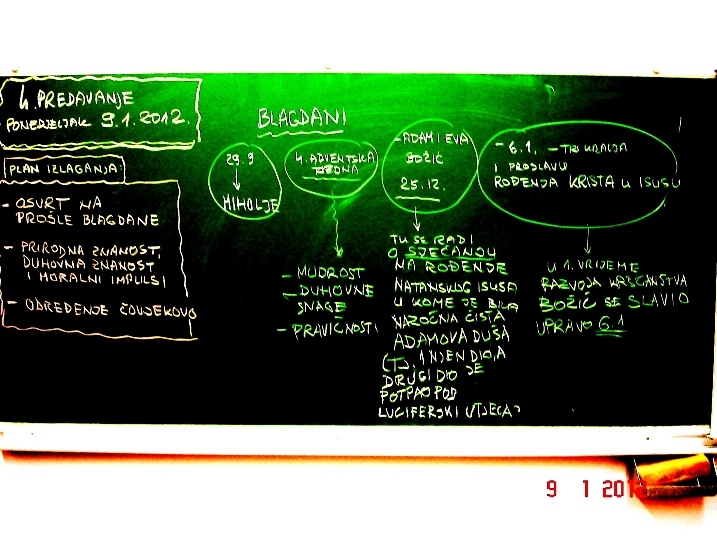 4. PREDAVANJE
PONEDJELJAK 9.1.2012.
PLAN IZLAGANJA:
- OSVRT NA
PROŠLE BLAGDANE
- PRIRODNA ZNANOST,
DUHOVNA ZNANOST
I MORALNI IMPULSI
- ODREĐENJE ČOVJEKOVO
BLAGDANI
29.9
MIHOLJE
4. ADVENTSKA
TJEDNA
- MUDROST
- DUHOVNE
SNAGE
- PRAVIČNOSTI
- ADAM I EVA
BOŽIĆ
25.12.
TU SE RADI
O SJEĆANJU
NA ROĐENJE
NATANSKOG ISUSA
U KOME JE BILA
NAZOČNA ČISTA
ADAMOVA DUŠA
(TJ. NJEN DIO, A
DRUGI DIO JE
POTPAO POD
LUCIFERSKI UTJECAJ
- 6.1. - TRI KRALJA
I PROSLAVU
ROĐENJA KRISTA U ISUSU
U 1. VRIJEME
RAZVOJA KRŠĆANSTVA
BOŽIĆ SE SLAVIO
UPRAVO 6.1
9 1 201